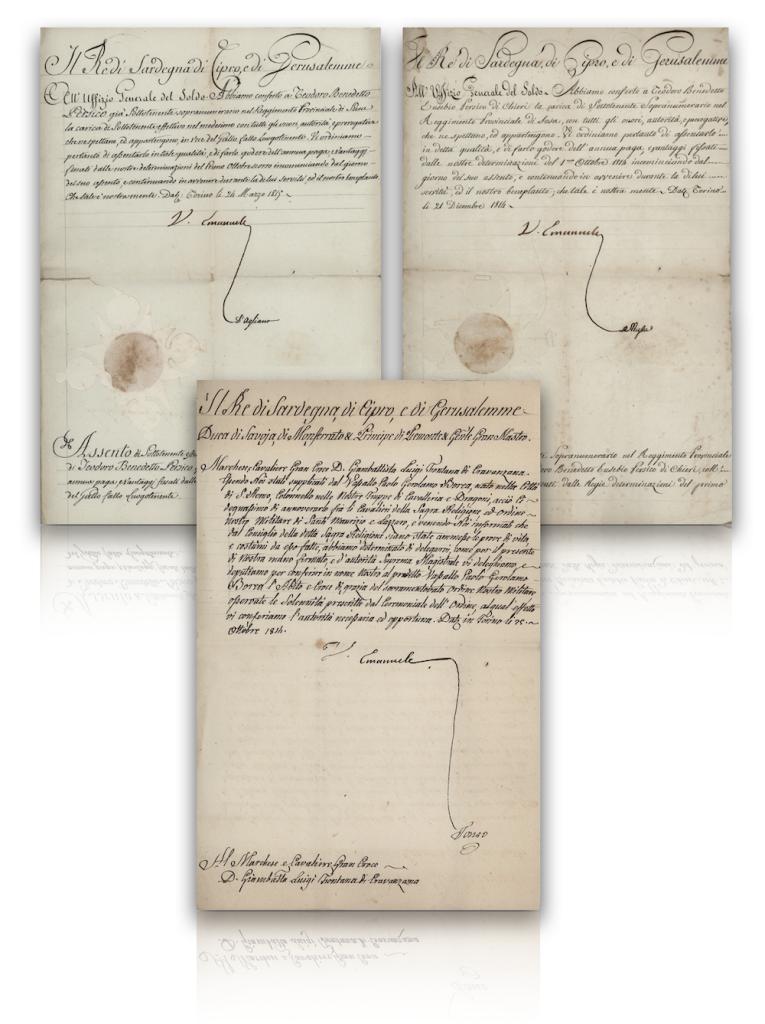 Il Re di Sardegna di Cipro, e di Gerusalemme
All' Uffizio Generale del Soldo. Abbiamo conferto a Teodoro Benedetto
Persico già Sottotenente sopranumerario nel Reggimento Provinciale di Susa
la carica di Sottotenente effettivo nel medesimo con tutti gli onori, autorità, e prerogative
che ne spettano, ed appartengono, in vece del Gatto fatto Luogotenente. Vi ordiniamo
pertanto di assentarlo in tale qualità, e di farlo godere dell' annua paga, e vantaggi
fissati dalle nostre determinazioni del Primo Ottobre scorso incominciando dal giorno
del suo assento, e continuando in avvenire durante la di lui servitù, ed il nostro beneplacito,
che tale è nostra mente. Dat. Torino li 24 Marzo 1815
V. Emanuele
D'Agliano
Assento di Sottotenente
di Teodoro Benedetto Persico,
annua paga, e vantaggi fissati dalle
del Gatto fatto Luogotenente
Il Re di Sardegna, di Cipro, e di Gerusalemme
All' Uffizio Generale del Soldo. Abbiamo conferto a Teodoro Benedetto
Eusebio Persico di Chieri la carica di Sottotenente Sopranumerario nel
Reggimento Provinciale di Susa, con tutti gli onori, autorità, e prerogative,
che ne spettano, ed appartengono. Vi ordiniamo pertanto di assentarlo
in detta qualità, e di farlo godere dell' annua paga, e vantaggi fissati
dalle nostre determinazioni del 1mo Ottobre 1814 incominciando dal
giorno del suo assento, e continuando in avvenire durante la di lui
servitù, ed il nostro beneplacito, che tale è nostra mente. Dat. Torino
li 21 Dicembre 1814
V. Emanuele
Sopranumerario nel Reggimento Provinciale
Benedetto Eusebio Persico di Chieri, coll'
dalle Regie determinazioni del primo
Il Re di Sardegna di Cipro, e di Gerusalemme
Duca di Savoja, di Monferrato &. Principe di Piemonte & Gñle Gran Mastro.
Marchese, Cavaliere Gran Croce D. Giambattista Luigi Fontana di Cravanzana.
Essendo Noi stati supplicati dal Vassallo Paolo Gerolamo Borra, nato nella Città
di Colonnello nelle Nostre Truppe di Cavalleria e Dragoni, acciò ci
degnassimo di annoverarlo frà li Cavalieri della Sagra Religione, ed ordine
Nostro Militare di Santi Maurizio e Lazzaro, e venendo Noi informati che
dal Consiglio della detta Sagra Religione siano state ammesse le prove di vita,
e costumi da esso fatte, abbiamo determinato di delegarvi, come per il presente
di Nostra mano firmato, e d'autorità Suprema Magistrale vi deleghiamo, e
deputiamo per conferir in nome Nostro al predetto Vassallo Paolo Gerolamo
Borra l'Abito e Croce di grazia del Ordine Nostro Militare
osservate le Solennità prescritte dal Ceremoniale dell' Ordine, al qual effetto
vi conferiamo l'autorità necessaria ed opportuna. Dat. in Torino li 25
Ottobre 1814.
V. Emanuele
Al Marchese e Cavaliere Gran Croce
D. Giambatta Luigi Fontana di Cravanzana